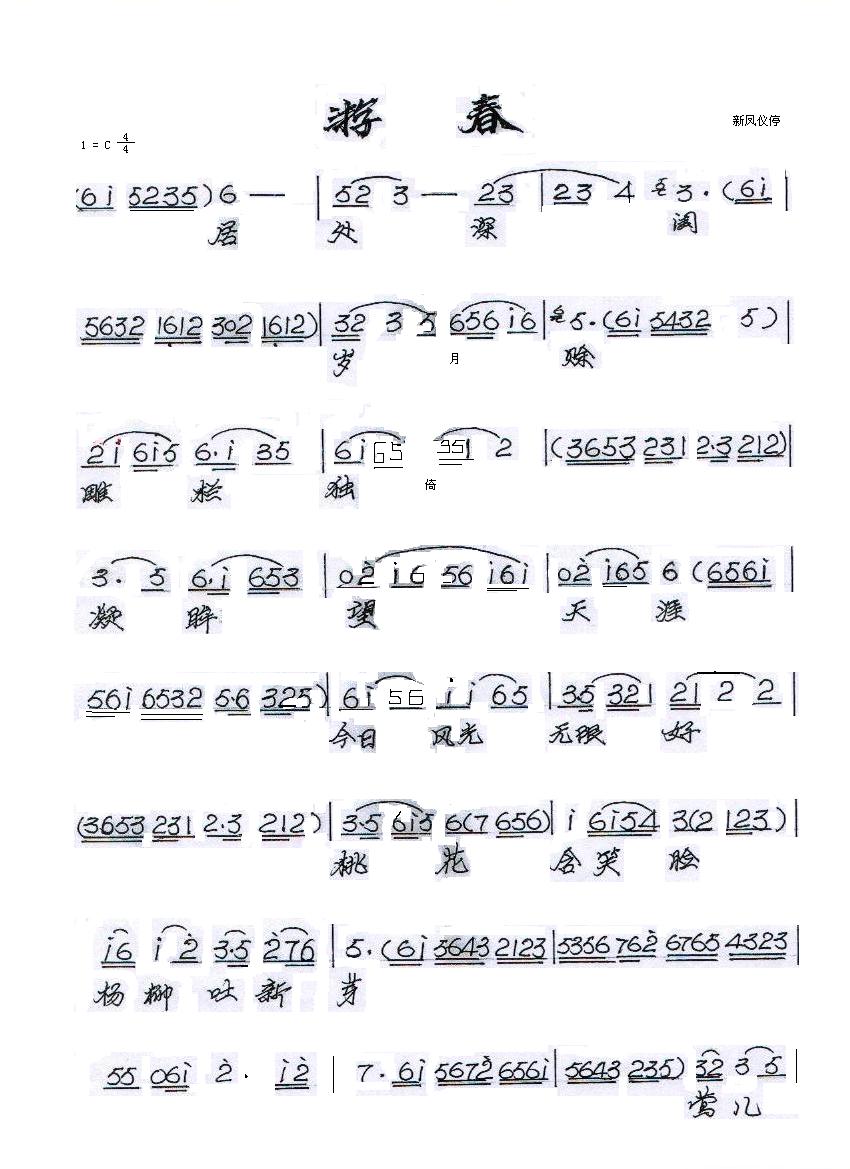 游 春
新凤仪停
1 = C 4/4
(6i 5235) 6 — | 52 3 — 23 | 23 4 3 . (6i |
居 处 深 闺
5632 1612 302 1612) | 32 3 5 656i6 | 5 . (6i 5432 5)
岁 月 赊
2i 6i5 6.i 35 | 6i65 351 2 | (3653 231 2.3 212) |
雕 栏 独 倚
3 . 5 6.i 653 | 02̇ i6 56 i6i | 02̇ i65 6 (656i |
凝 眸 望 天 涯
56i 6532 5.6 325) | 6i 56 i i 65 | 3.5 321 21 2 2 |
今日 风光 无限 好
(3653 231 2.3 212) | 3.5 6i5 6(7 656) | i 6i54 3(2 123) |
桃 花 含 笑 脸
i6 i 2̇ 3.5 2̇76 | 5 . (6i 5643 2123 | 5356 762̇ 6765 4323 |
杨 柳 吐 新 芽
55 06i 2̇ . i2̇ | 7 . 6i 5672̇ 656i | 5643 235) 32 3 5 |
莺 儿